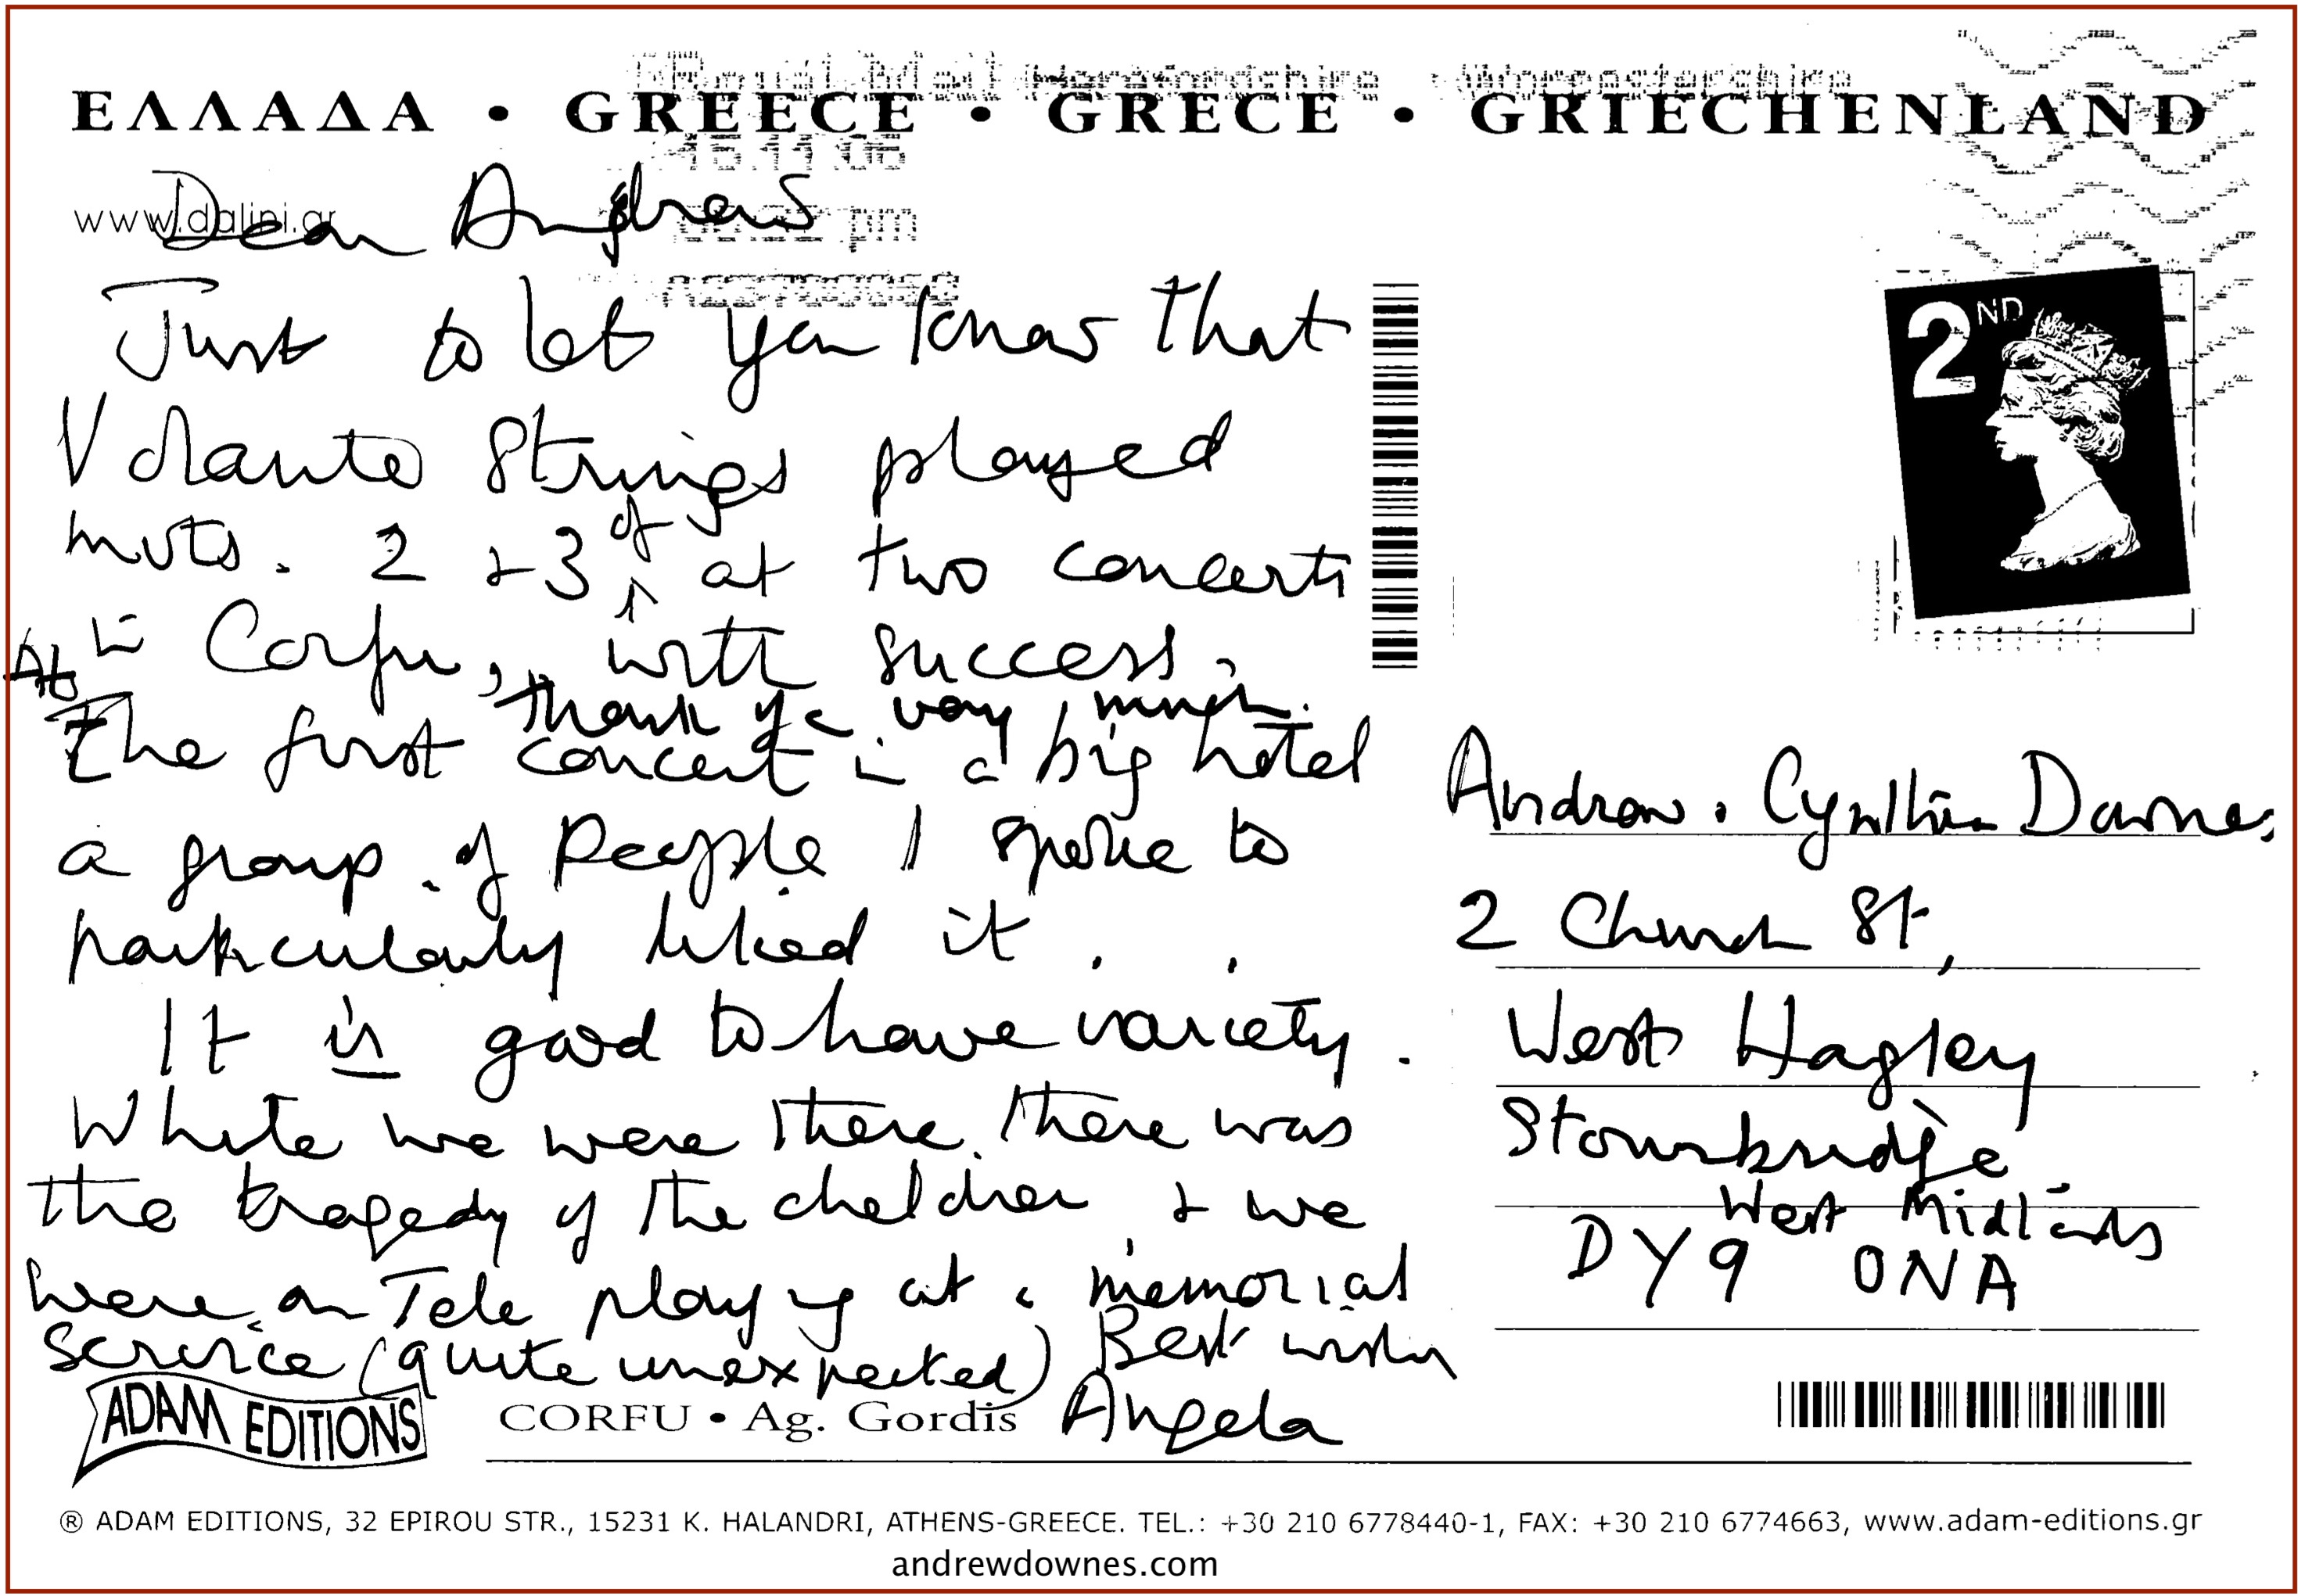 ΕΛΛΑΔΑ • GREECE • GRECE • GRIECHENLAND
Royal Mail Herefordshire & Worcestershire
pm
www.dalini.gr
Dear Andrew
Just to let you know that
Volante Strings played
mvts. 2 + 3 of at two concerts
in Corfu, with success,
thank you very much.
At
The first concert in a big hotel
a group of people I spoke to
particularly liked it.
It is good to have variety.
While we were there there was
the tragedy of the children & we
were on Tele playing at a memorial
service (quite unexpected) Best wishes
Angela
2ND
Andrew & Cynthia Downes
2 Church St,
West Hagley
Stourbridge
West Midlands
DY9 0NA
ADAM EDITIONS
CORFU • Ag. Gordis
® ADAM EDITIONS, 32 EPIROU STR., 15231 K. HALANDRI, ATHENS-GREECE. TEL.: +30 210 6778440-1, FAX: +30 210 6774663, www.adam-editions.gr
andrewdownes.com